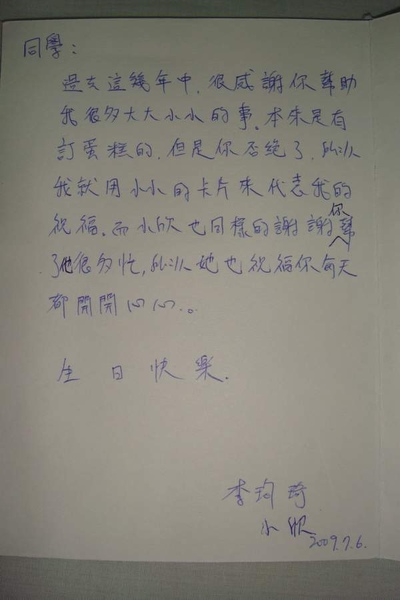 同學：
過去這幾年中，很感謝你幫助
我很多大大小小的事、本來是有
訂蛋糕的，但是你否絕了，所以
我就用小小的卡片來代表我的
祝福。而小欣也同樣的謝謝你幫
了他很多忙，所以她也祝福你每天
都開開心心。。
生日快樂．
李珣琦
小欣
2009.7.6.